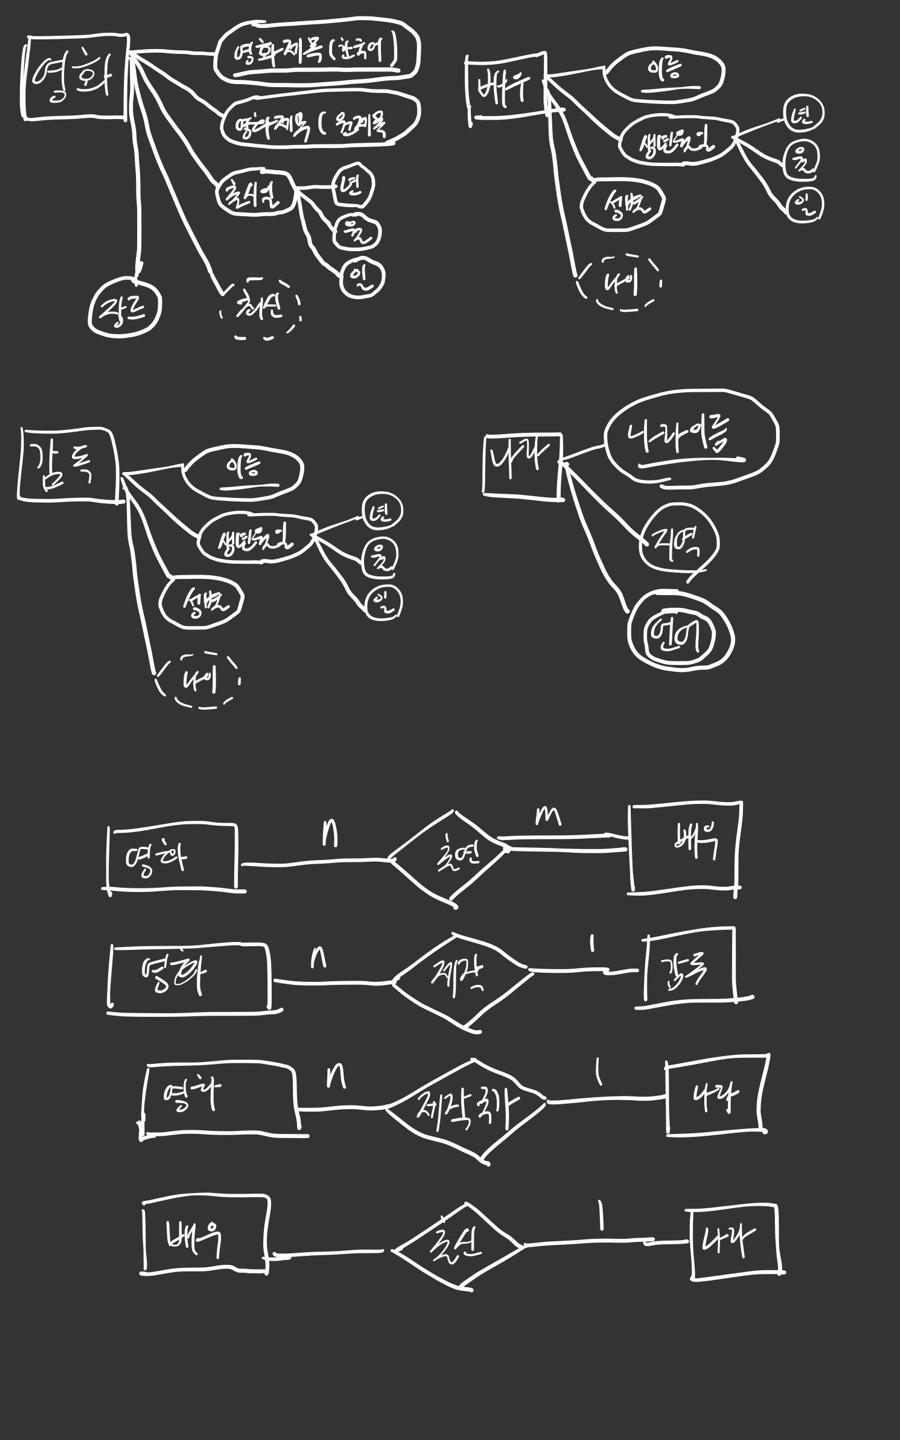 영화
영화제목(한국어)
영화제목(원제목
출시일
년
월
일
최신
장르
배우
이름
생년월일
년
월
일
성별
나이
감독
이름
생년월일
년
월
일
성별
나이
나라
나라이름
지역
언어
영화 n 출연 m 배우
영화 n 제작 1 감독
영화 n 제작국가 1 나라
배우 출신 1 나라